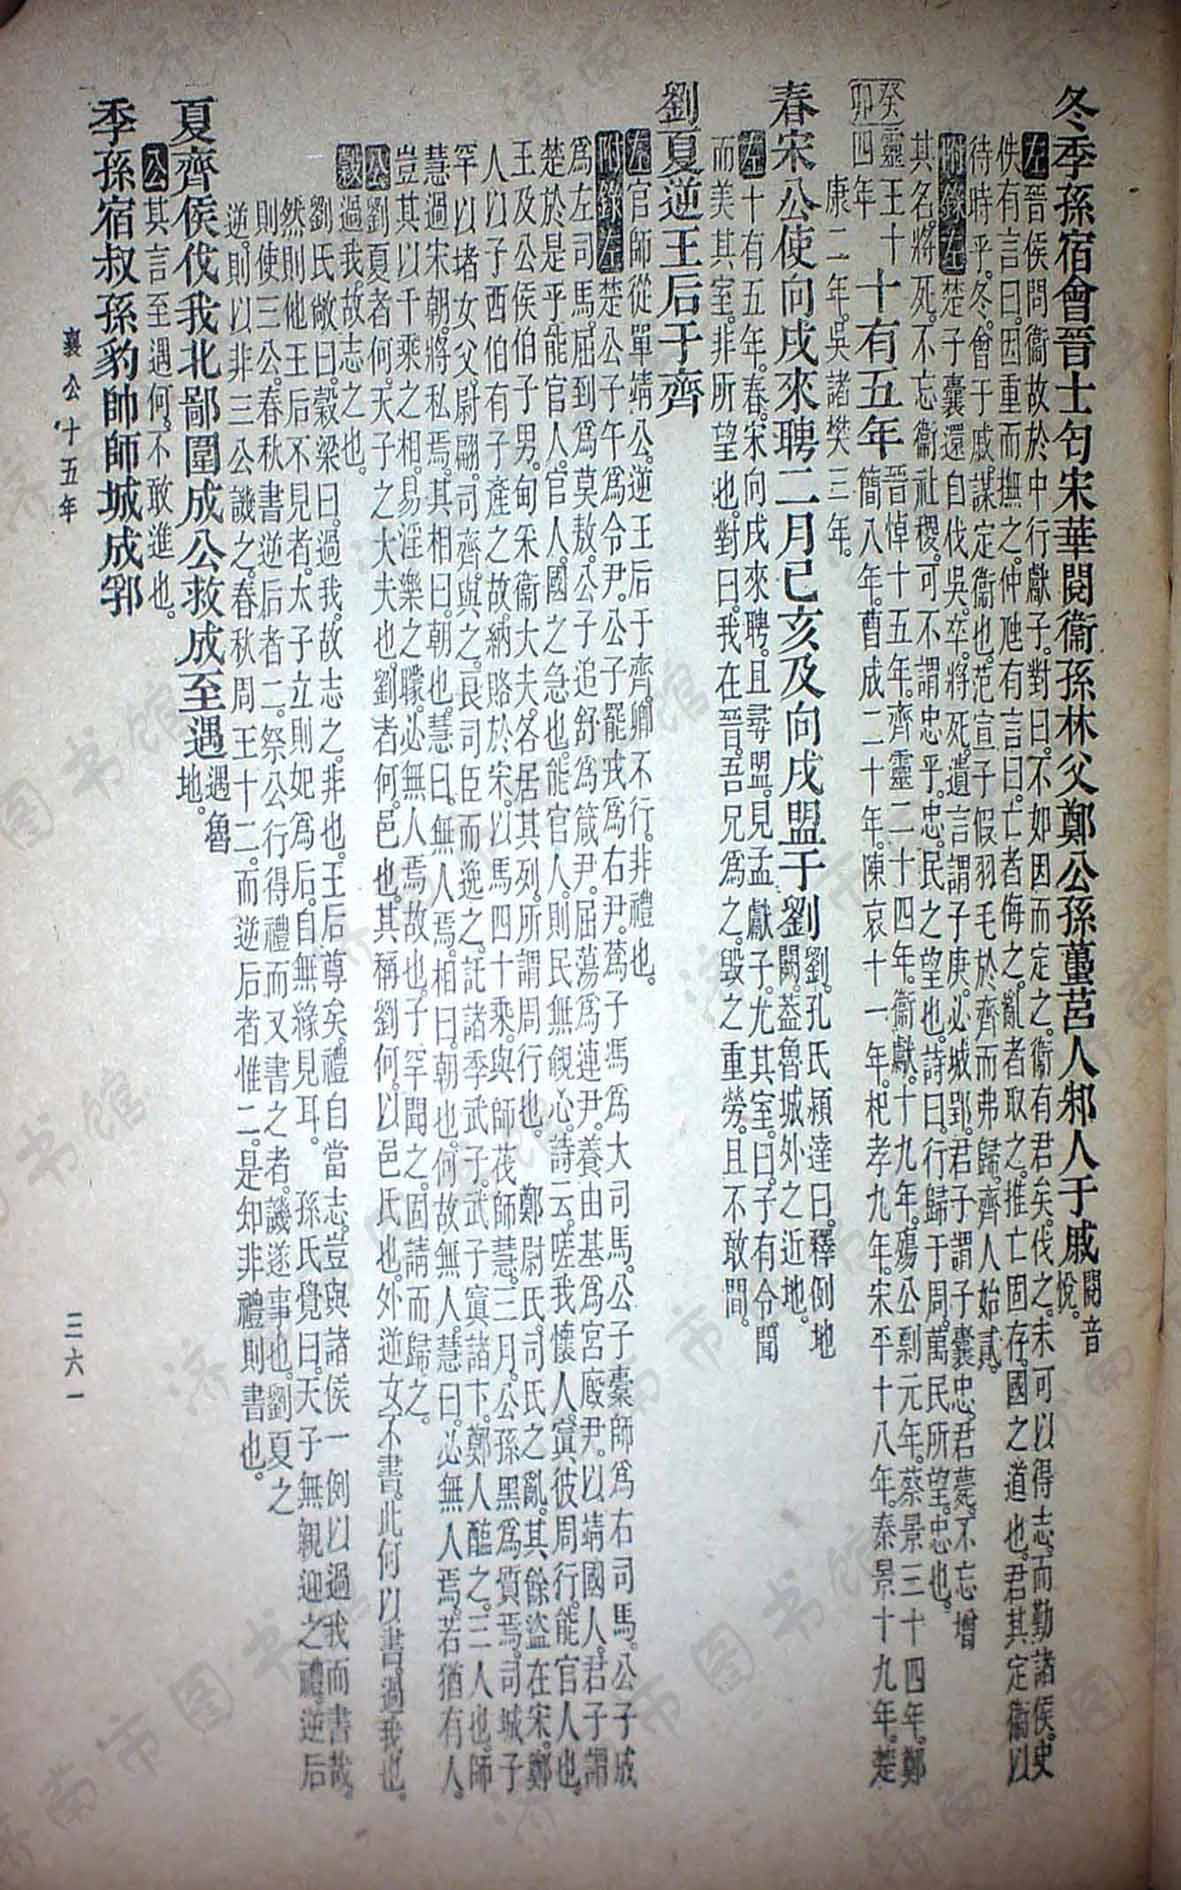 冬季孫宿會晉士匄宋華閱衞孫林父鄭公孫蠆莒人邾人于戚閱音悅。
左晉侯問衞故於中行獻子。對曰。不如因而定之。衞有君矣。伐之。未可以得志。而勤諸侯。史
佚有言曰。因重而撫之。仲虺有言曰。亡者侮之。亂者取之。推亡固存。國之道也。君其定衞以
待時乎。冬。會于戚。謀定衞也。范宣子假羽毛於齊而弗歸。齊人始貳。
附錄左楚子囊還自伐吳。卒。將死。遺言謂子庚。必城郢。君子謂子囊忠。君薨。不忘增
其名。將死。不忘衞社稷。可不謂忠乎。忠。民之望也。詩曰。行歸于周。萬民所望。忠也。
癸卯靈王十四年十有五年晉悼十五年。齊靈二十四年。衞獻十九年。殤公剽元年。蔡景三十四年。鄭
簡八年。曹成二十年。陳哀十一年。杞孝九年。宋平十八年。秦景十九年。楚
康二年。吳諸樊三年。
春宋公使向戌來聘二月己亥及向戌盟于劉劉。孔氏穎達曰。釋例地闕。蓋魯城外之近地。
左十有五年。春。宋向戌來聘。且尋盟。見孟獻子。尤其室。曰。子有令聞
而美其室。非所望也。對曰。我在晉。吾兄爲之。毀之重勞。且不敢間。
劉夏逆王后于齊
左官師從單靖公。逆王后于齊。卿不行。非禮也。
附錄左楚公子午爲令尹。公子罷戎爲右尹。蔿子馮爲大司馬。公子橐師爲右司馬。公子成
爲左司馬。屈到爲莫敖。公子追舒爲箴尹。屈蕩爲連尹。養由基爲宮廄尹。以靖國人。君子謂
楚於是乎能官人。官人。國之急也。能官人。則民無覦心。詩云。嗟我懷人。寘彼周行。能官人也。
王及公侯伯子男。甸采衞大夫。各居其列。所謂周行也。　鄭尉氏。司氏之亂。其餘盜在宋。鄭
人以子西伯有子產之故。納賂於宋。以馬四十乘。與師茷師慧。三月。公孫黑爲質焉。司城子
罕以堵女父。尉翩。司齊。與之。良司臣而逸之。託諸季武子。武子寘諸卞。鄭人醢之。三人也。師
慧過宋朝。將私焉。其相曰。朝也。慧曰。無人焉。相曰。朝也。何故無人。慧曰。必無人焉。若猶有人。
豈其以千乘之相。易淫樂之矇。必無人焉故也。子罕聞之。固請而歸之。
公劉夏者何。天子之大夫也。劉者何。邑也。其稱劉何。以邑氏也。外逆女不書。此何以書。過我也。
穀過我。故志之也。
劉氏敞曰。穀梁曰。過我。故志之。非也。王后尊矣。禮自當志。豈與諸侯一例以過我而書哉。
然則他王后不見者。太子立則妃爲后。自無緣見耳。　孫氏覺曰。天子無親迎之禮。逆后
則使三公。春秋書逆后者二。祭公行得禮而又書之者。譏遂事也。劉夏之
逆。則以非三公譏之。春秋周王十二。而逆后者惟二。是知非禮則書也。
夏齊侯伐我北鄙圍成公救成至遇遇魯地。
公其言至遇何。不敢進也。
季孫宿叔孫豹帥師城成郛
襄公十五年
三六一